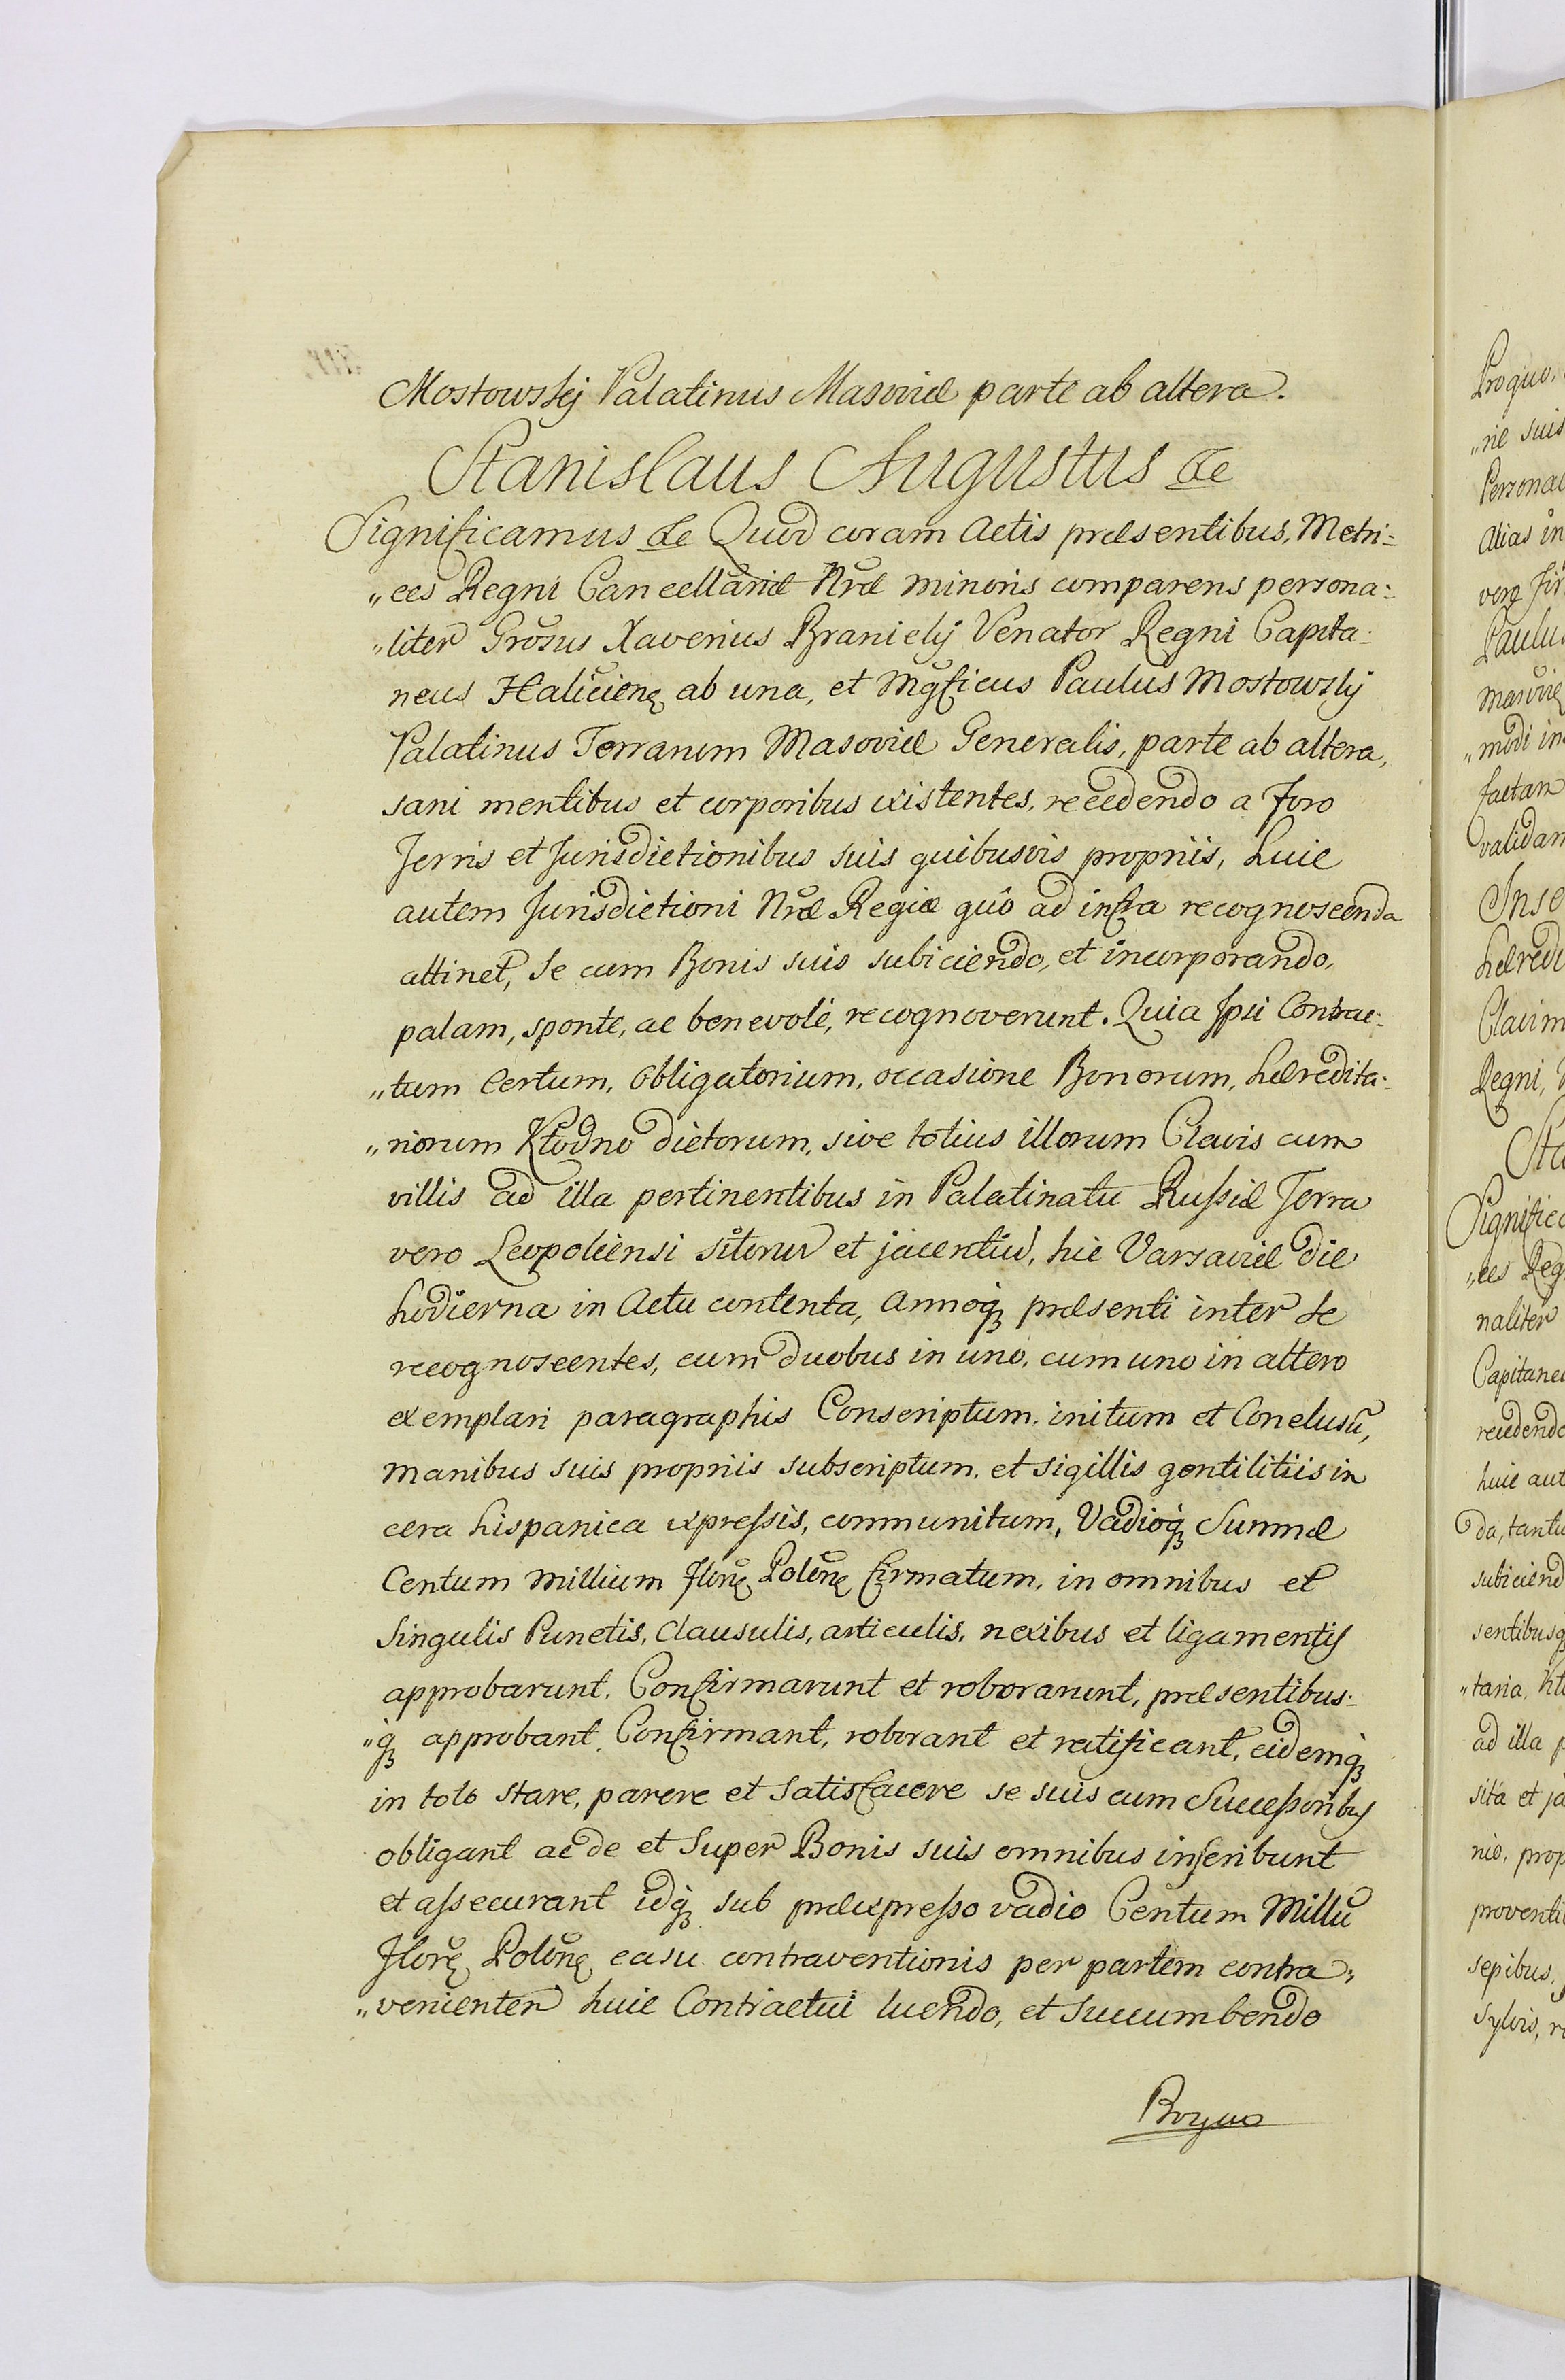 Mostowskij Palatinus Masoviæ parte ab altera.
Stanislaus Augustus &c
Significamus &c Quod coram Actis præsentibus, Metri=
„ces Regni Cancellariæ Nræ minoris comparens persona=
„liter Grosus Xaverius Branicky Venator Regni Capita=
neus Halicienę ab una, et Mgficus Paulus Mostowsky
Palatinus Terrarum Masoviæ Generalis, parte ab altera,
sani mentibus et corporibus existentes, recedendo a Foro
Terris et Jurisdictionibus suis quibusvis propriis, huic
autem Jurisdictioni Nræ Regiæ quô ad infra recognoscenda
attinet, se cum Bonis suis subiciendo, et incorporando,
palam, sponte, ac benevolè, recognoverunt. Quia Ipsi Contrac=
„tum Certum, obligatorium, occasione Bonorum, hæredita=
„riorum Kłodno dictorum, sive totius illorum Clavis cum
villis ad illa pertinentibus in Palatinatu Russiæ Terra
vero Leopoliensi sitorum et jacentium, hic Varsaviæ die
hodierna in Actu contenta, annoq; præsenti inter se
recognoscentes, cum duobus in uno, cum uno in altero
exemplari paragraphis Conscriptum, initum et Conclusũ,
manibus suis propriis subscriptum, et sigillis gentilitiis in
cera hispanica expressis, communitum, Vadioq; Summæ
Centum millium florę Polonę firmatum, in omnibus et
singulis Punctis, Clausulis, articulis, nexibus et ligamentis
approbarunt, Confirmarunt et roborarunt, præsentibus=
„q; approbant, Confirmant, roborant et ratificant, eidemq;
in toto stare, parere et satisfacere se suis cum Successoribus
obligant ac de et super Bonis suis omnibus inscribunt
et assecurant idq; sub præexpresso vadio Centum Milliũ
florę Polonę casu contraventionis per partem contra=
„venientem huic Contractui luendo, et succumbendo
Proquo,
„riæ suis
Personal
alias in
vero
Paulus
Masoviæ
„modi in
factam
validam
Inse
hæredi
Clavim
Regni,
Sta
Significa
„ces Reg
naliter
Capitaneu
recedendo
huic aut
da, tantu
subiciend
sentibusq
„taria, Kł
ad illa p
sita et ja
nio, prop
proventi
sepibus,
sylvis, r